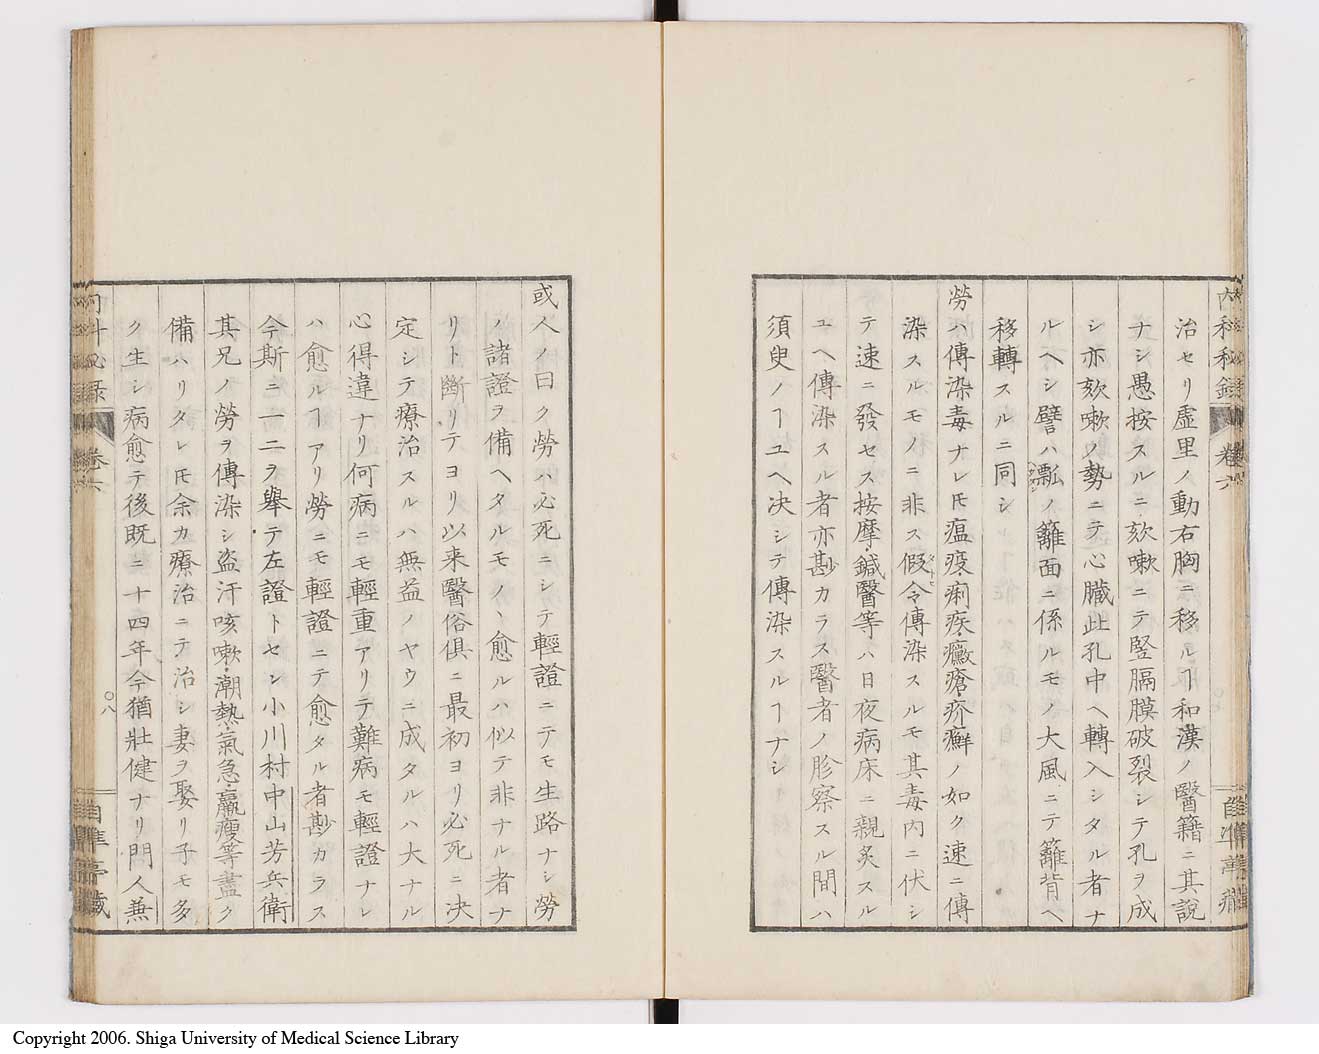 治セリ虚里ノ動右胸ニ移ルヿ和漢ノ醫籍ニ其說
ナシ愚按スルニ欬嗽ニテ竪膈膜破裂シテ孔ヲ成
シ亦欬嗽ノ勢ニテ心臓此孔中ヘ轉入シタル者ナ
ルヘシ譬ハ瓢ノ籬面ニ係ルモノ大風ニテ籬背ヘ
移轉スルニ同シ
勞ハ傳染毒ナレ𪜈瘟疫痢疾癥瘡疥癬ノ如ク速ニ傳
染スルモノニ非ス假令傳染スルモ其毒内ニ伏シ
テ速ニ發セス按摩鍼醫等ハ日夜病床ニ親炙スル
ユヘ傳染スル者亦尠カラス醫者ノ胗察スル間ハ
須臾ノヿユヘ决シテ傳染スルヿナシ
或人ノ曰ク勞ハ必死ニシテ輕證ニテモ生路ナシ勞
ノ諸證ヲ備ヘタルモノヽ愈ルハ似テ非ナル者ナ
リト斷リテヨリ以来醫俗倶ニ最初ヨリ必死ニ决
定シテ療治スルハ無益ノヤウニ成タルハ大ナル
心得違ナリ何病ニモ輕重アリテ難病モ輕證ナレ
ハ愈ルヿアリ勞ニモ輕證ニテ愈タル者尠カラス
今斯ニ一二ヲ舉テ左證トセン小川村中山芳兵衛
其兄ノ勞ヲ傳染シ盗汗咳嗽潮熱氣急羸瘦等盡ク
備ハリタレ𪜈余カ療治ニテ治シ妻ヲ娶リ子モ多
ク生シ病愈テ後既ニ十四年今猶壯健ナリ門人兼
内科秘錄
卷六
八
自準亭藏
Copyright 2006. Shiga University of Medical Science Library